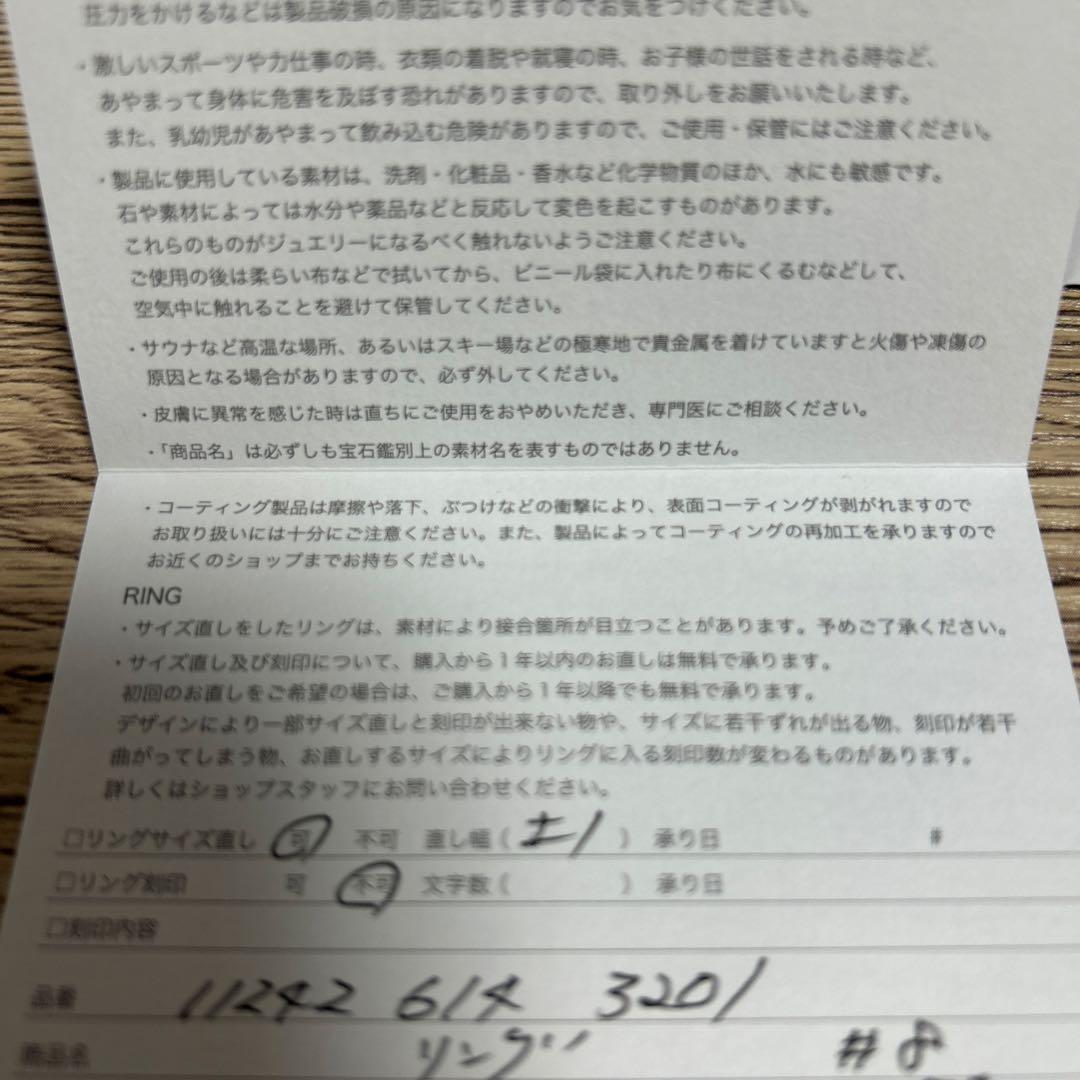 圧力をかけるなどは製品破損の原因になりますのでお気をつけください。
・激しいスポーツや力仕事の時、衣類の着脱や就寝の時、お子様の世話をされる時など、
あやまって身体に危害を及ぼす恐れがありますので、取り外しをお願いいたします。
また、乳幼児があやまって飲み込む危険がありますので、ご使用・保管にはご注意ください。
・製品に使用している素材は、洗剤・化粧品・香水など化学物質のほか、水にも敏感です。
石や素材によっては水分や薬品などと反応して変色を起こすものがあります。
これらのものがジュエリーになるべく触れないようご注意ください。
ご使用の後は柔らい布などで拭いてから、ビニール袋に入れたり布にくるむなどして、
空気中に触れることを避けて保管してください。
・サウナなど高温な場所、あるいはスキー場などの極寒地で貴金属を着けていますと火傷や凍傷の
原因となる場合がありますので、必ず外してください。
・皮膚に異常を感じた時は直ちにご使用をおやめいただき、専門医にご相談ください。
・「商品名」は必ずしも宝石鑑別上の素材名を表すものではありません。
・コーティング製品は摩擦や落下、ぶつけなどの衝撃により、表面コーティングが剥がれますので
お取り扱いには十分にご注意ください。また、製品によってコーティングの再加工を承りますので
お近くのショップまでお持ちください。
RING
・サイズ直しをしたリングは、素材により接合箇所が目立つことがあります。予めご了承ください。
・サイズ直し及び刻印について、購入から1年以内のお直しは無料で承ります。
初回のお直しをご希望の場合は、ご購入から1年以降でも無料で承ります。
デザインにより一部サイズ直しと刻印が出来ない物や、サイズに若干ずれが出る物、刻印が若干
曲がってしまう物、お直しするサイズによりリングに入る刻印数が変わるものがあります。
詳しくはショップスタッフにお問い合わせください。
□リングサイズ直し 可 不可 直し幅（ ±1 ） 承り日 #
□リング刻印 可 不可 文字数（ ） 承り日
□刻印内容
品番 11242 614 3201
商品名 リング #8